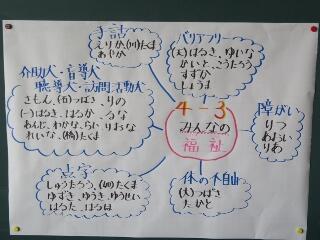 手話
えりか、(川)たくま
あやか
バリアフリー
(大)はるき、ゆいな
かいと、こうたろう
すずか
しょうま
介助犬・盲導犬
聴導犬・訪問活動犬
さもん、(石)つばさ、りの
(一)はるき、はるか、るな
あんじ、わかな、らい、りおな
れいな、(橋)たくま
4-3
みんなの
福祉
障がい
りつ
あおい
りわ
点字
しゅうたろう、(如)たくま
ゆずき、ゆうき、ゆうせい
はるた、はるほ
体の不自由
(大)つばさ
たかと